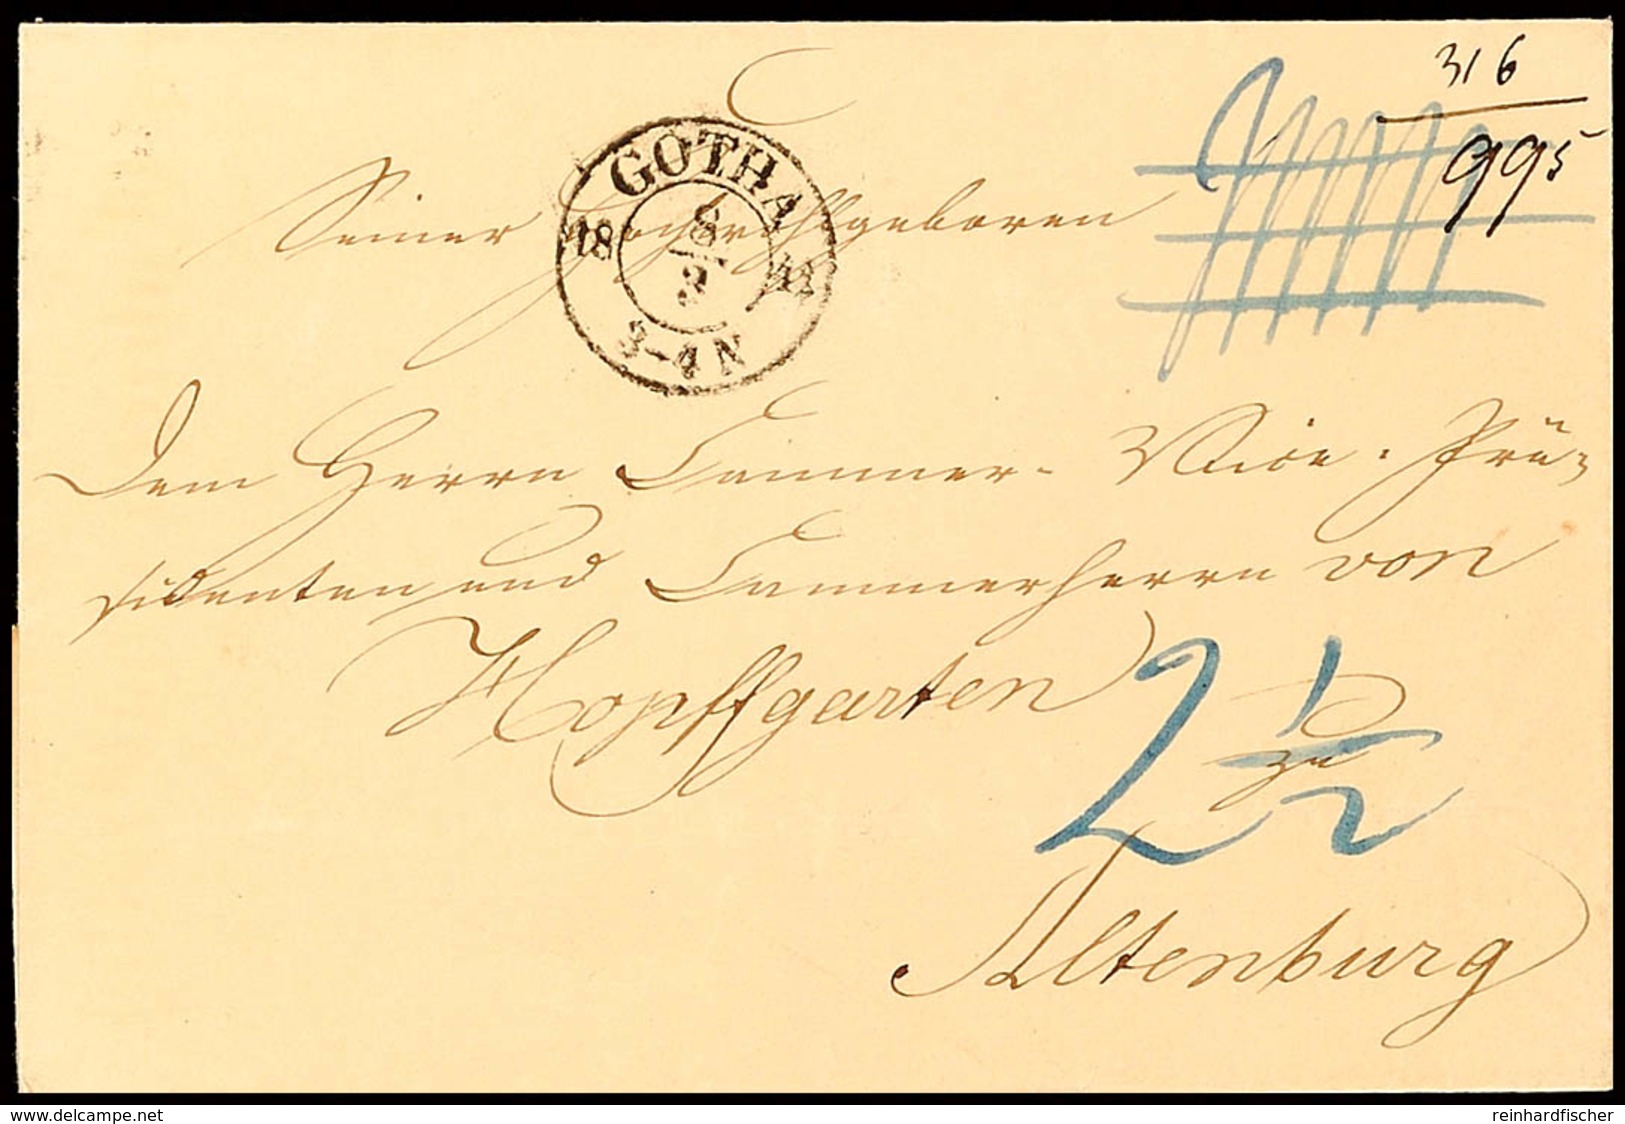 316
995
GOTHA
18 8/3 44
3-4 N
Seiner Hochwohlgeboren
Dem Herrn Cammer- Vice-Prä-
sidenten und Cammerherrn von
Hopffgarten
2 1/2
zu
Altenburg
www.delcampe.net
reinhardfischer